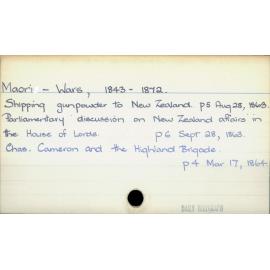 Maori - Wars, 1843 - 1872.
Shipping gunpowder to New Zealand. p5 Aug 28, 1863.
Parliamentary discussion on New Zealand affairs in
the House of Lords. p6 Sept 28, 1863.
Chas. Cameron and the Highland Brigade.
p4 Mar 17, 1864.